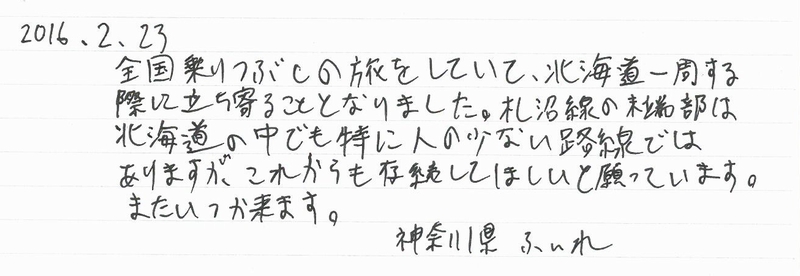 2016.2.23
全国乗りつぶしの旅をしていて、北海道一周する
際に立ち寄ることとなりました。札沼線の末端部は
北海道の中でも特に人の少ない路線では
ありますが、これからも存続してほしいと願っています。
またいつか来ます。
神奈川県 ふぃれ